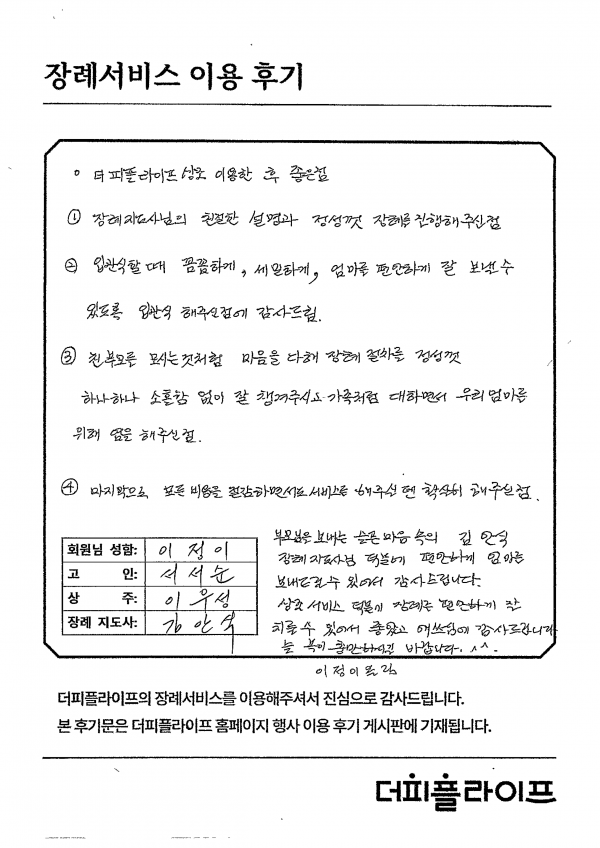 장례서비스 이용 후기
° 더피플라이프 상조 이용한 후 좋은점
① 장례지도사님의 친절한 설명과 정성껏 장례를 진행해주신점
② 입관식할때 꼼꼼하게, 세밀하게, 엄마를 편안하게 잘 보낼수
있도록 입관식 해주신점에 감사드림.
③ 친부모를 모시는것처럼 마음을 다해 장례 절차를 정성껏
하나하나 소홀함 없이 잘 챙겨주시고 가족처럼 대하면서 우리엄마를
위해 염을 해주신점.
④ 마지막으로 모든 비용을 절감하면서도 서비스는 해주신 확실히 해주신점.
회원님 성함: 이정이
고 인: 서서순
상 주: 이우성
장례 지도사: 김안식
부모님은 보내는 슬픈마음 속의 김안식
장례지도사님 덕분에 편안하게 엄마를
보내드릴수 있어서 감사드립니다.
상조서비스 덕분에 장례를 편안하게 잘
치를수 있어서 좋았고 애쓰심에 감사드립니다
늘 복이 충만하시길 바랍니다. ^^.
이정이드림
더피플라이프의 장례서비스를 이용해주셔서 진심으로 감사드립니다.
본 후기문은 더피플라이프 홈페이지 행사 이용 후기 게시판에 기재됩니다.
더피플라이프